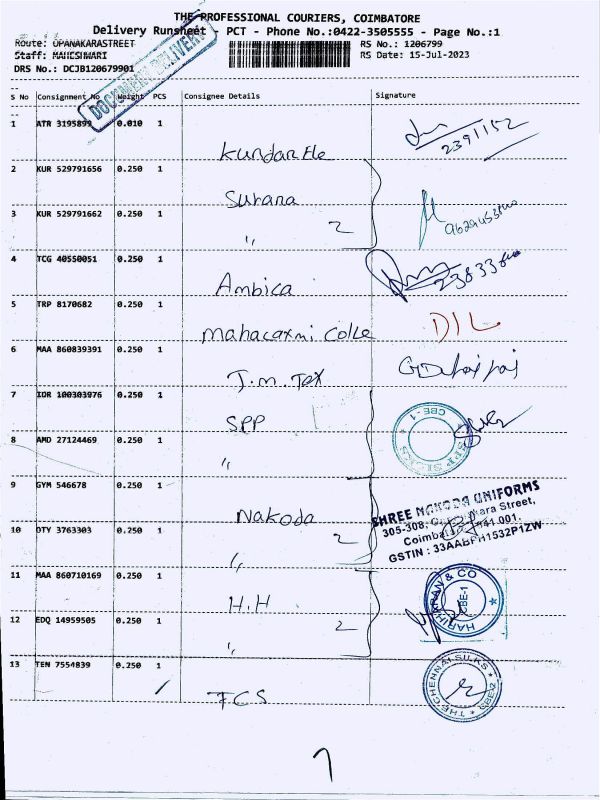 THE PROFESSIONAL COURIERS, COIMBATORE
Delivery Runsheet - PCT - Phone No.:0422-3505555 - Page No.:1
Route: OPANAKARASTREET
RS No.: 1206799
Staff: MAHESWARI
RS Date: 15-Jul-2023
DRS No.: DCJB120679901
DOCUMENT DELIVERY
S No Consignment No Weight PCS Consignee Details Signature
1 ATR 3195899 0.010 1
Kundan Ele
2391152
2 KUR 529791656 0.250 1
Surana
3 KUR 529791662 0.250 1
" 2
4 TCG 40550051 0.250 1
Ambica
5 TRP 8170682 0.250 1
Mahalaxmi Colle
DIL
6 MAA 860839391 0.250 1
J.m. Tex
7 IDR 100303976 0.250 1
SPP
SPP SILKS CBE - 1
8 AMD 27124469 0.250 1
"
9 GYM 546678 0.250 1
Nakoda
SHREE NAKODA UNIFORMS
305-308,
Street,
GSTIN : 33AABFH1532P1ZW
10 OTY 3763303 0.250 1
" 2
11 MAA 860710169 0.250 1
H.H
HARIHARAN & CO CBE-1
12 EDQ 14959505 0.250 1
" 2
13 TEN 7554839 0.250 1
TCS
THE CHENNAI SILKS CBE-2
7